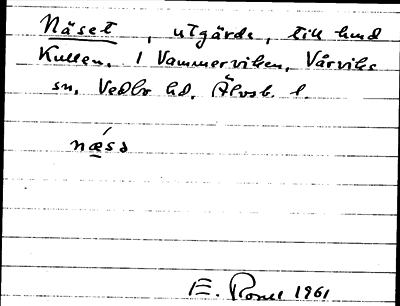 Näset, utgärde, till hmd
Kullen, 1 Vammerviken, Vårviks
sn, Vedbo hd, Älvsb. l.
næsə
E. 1961